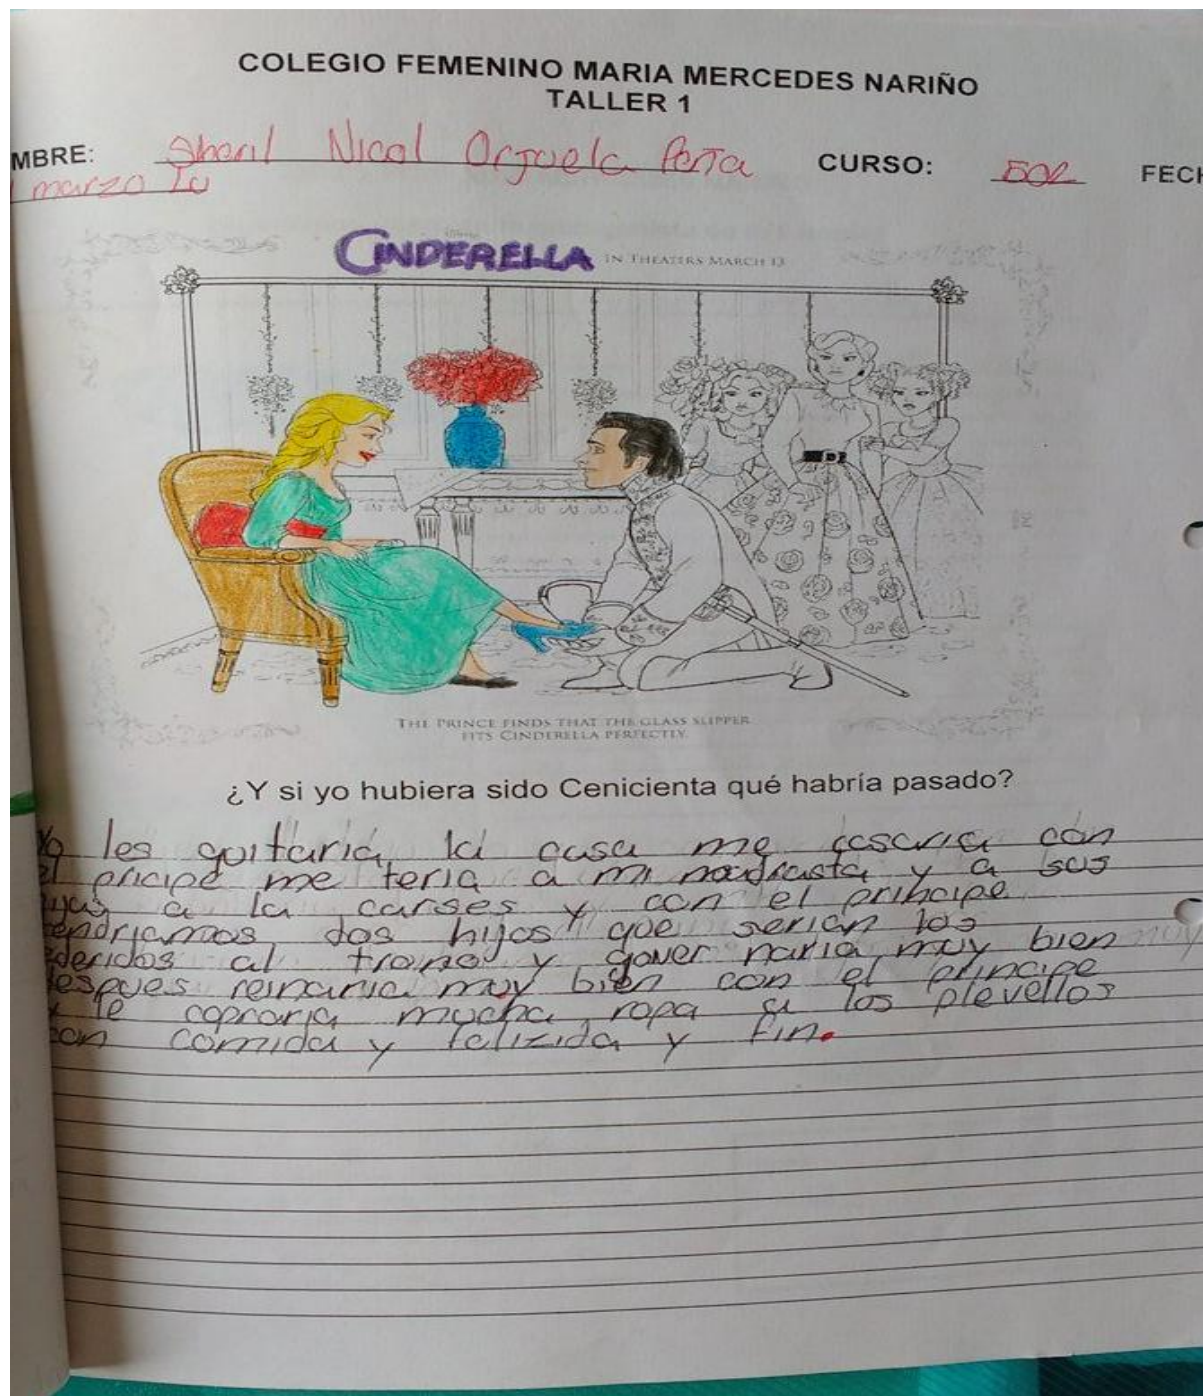 COLEGIO FEMENINO MARIA MERCEDES NARIÑO
TALLER 1
MBRE: Sheril Nicol Orjuela Peña CURSO: 502 FECH
marzo
CINDERELLA IN THEATERS MARCH 13
THE PRINCE FINDS THAT THE GLASS SLIPPER
FITS CINDERELLA PERFECTLY.
¿Y si yo hubiera sido Cenicienta qué habría pasado?
Yo les quitaria la casa me casaria con
el pricipe me teria a mi madrasta y a sus
a la carses y con el principe
tendriamos dos hijos que serian los
al trono y gover naria muy bien muy
despues reinaria muy bien con el principe
y le copraria mucha ropa a los plevellos
con comida y felizida y fin.